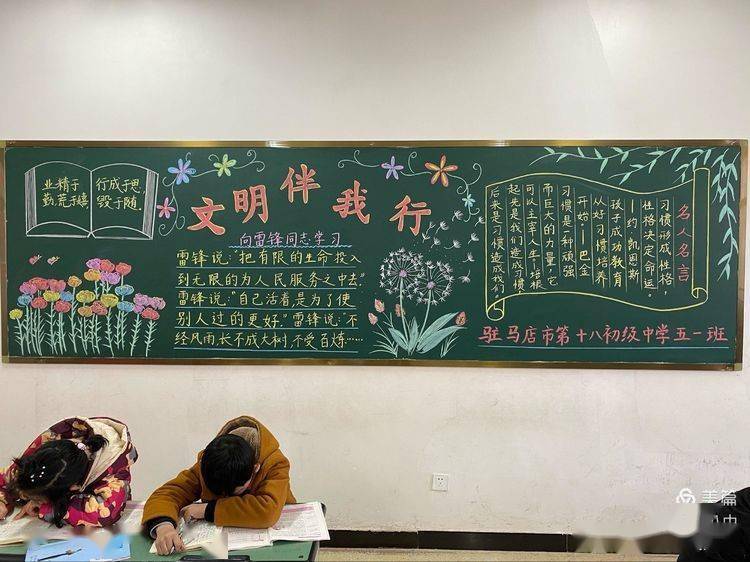 业精于
勤,荒于嬉,
行成于思,
毁于随。
文明伴我行
向雷锋同志学习
雷锋说:"把有限的生命投入
到无限的为人民服务之中去。"
雷锋说:"自己活着是为了使
别人过的更好。"雷锋说:"不
经风雨长不成大树,不受百炼……
名人名言
习惯形成性格,
性格决定命运。
—约·凯恩斯
孩子成功教育
从好习惯培养
开始。—巴金
习惯是一种顽强
而巨大的力量,它
可以主宰人生。培根
起先是我们造成习惯,
后来是习惯造成我们。
驻马店市第十八初级中学五一班
美篇